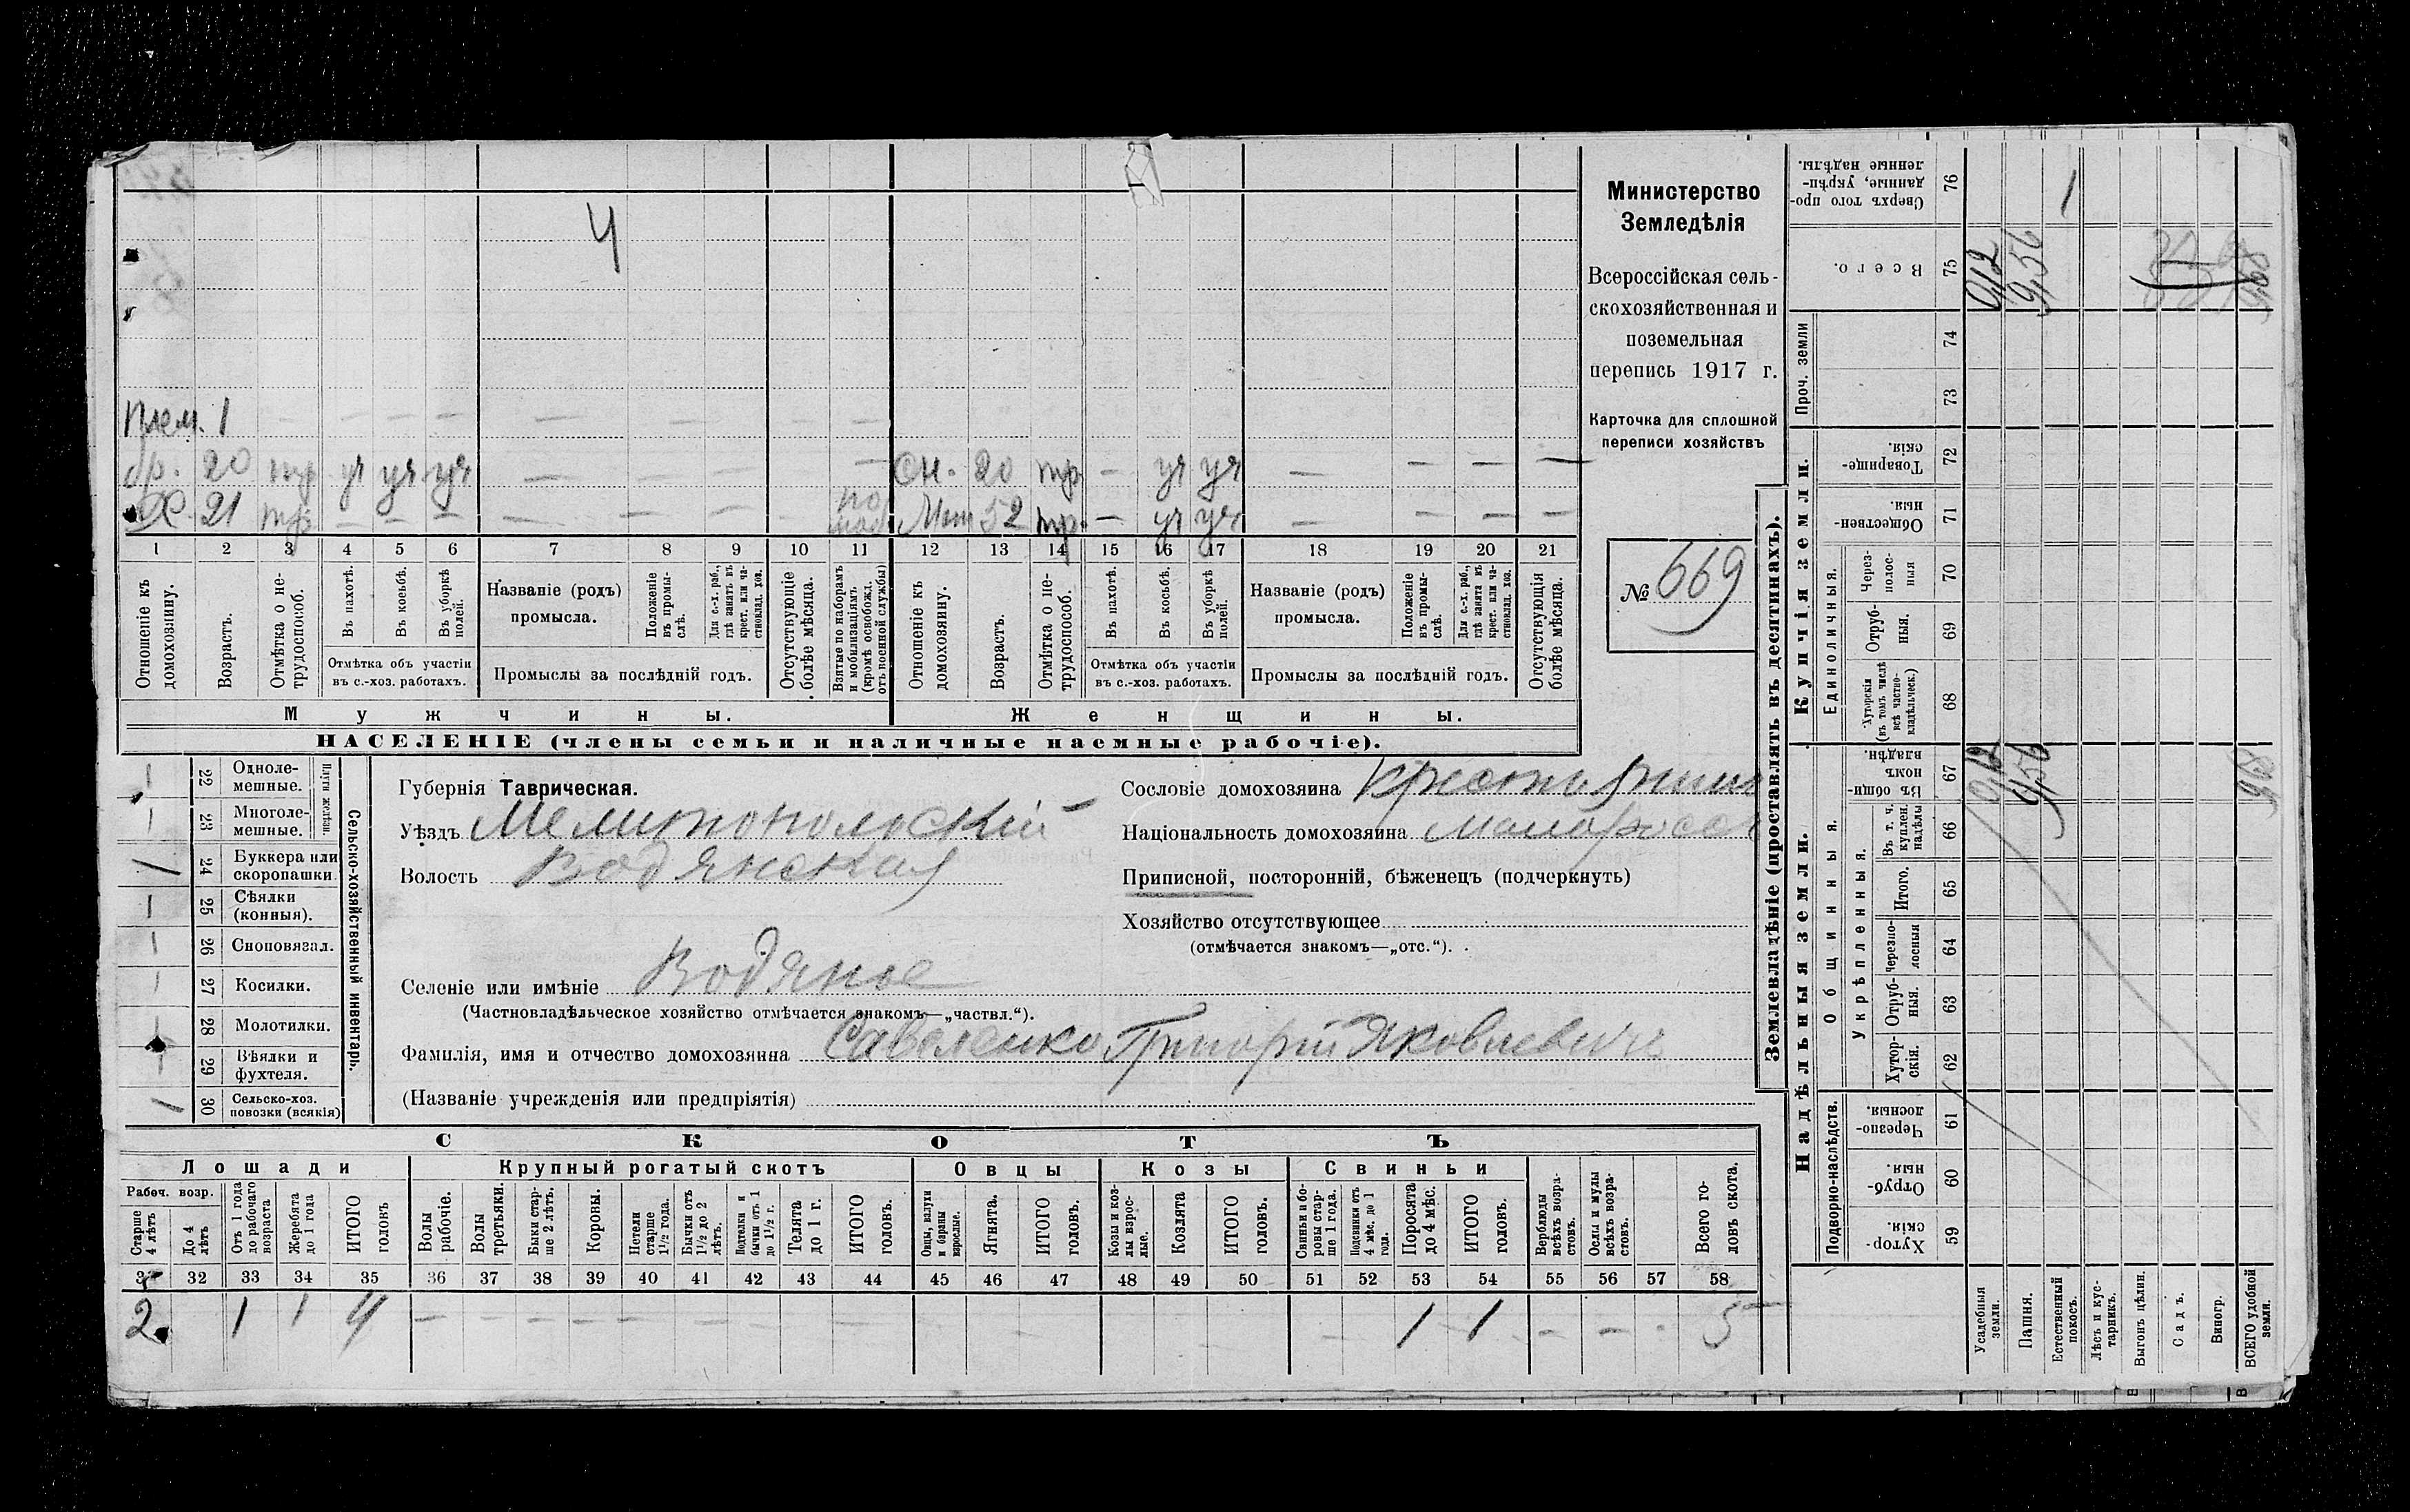 4
Плем. 1 — — — — — — — — —
бр. 20 тр уч уч уч — — — — Сн. 20 тр — уч уч — — — —
Х. 21 тр — — — — — — — по моб Мат 52 тр. — уч уч — — — —
1 2 3 4 5 6 7 8 9 10 11 12 13 14 15 16 17 18 19 20 21
Отношеніе къ домохозяину.
Возрастъ.
Отмѣтка о нетрудоспособ.
Въ пахотѣ.
Въ косьбѣ.
Въ уборкѣ полей.
Отмѣтка объ участіи
въ с.-хоз. работахъ.
Названіе (родъ)
промысла.
Положеніе въ промыслѣ.
Для с.-х. раб., гдѣ занятъ въ крест. или частновлад. хоз.
Промыслы за послѣдній годъ.
Отсутствующіе болѣе мѣсяца.
Взятые по наборамъ и мобилизаціямъ (кромѣ освобожд. отъ военной службы)
Отношеніе къ домохозяину.
Возрастъ.
Отмѣтка о нетрудоспособ.
Въ пахотѣ.
Въ косьбѣ.
Въ уборкѣ полей.
Отмѣтка объ участіи
въ с.-хоз. работахъ.
Названіе (родъ)
промысла.
Положеніе въ промыслѣ.
Для с.-х. раб., гдѣ занята въ крест. или частновлад. хоз.
Промыслы за послѣдній годъ.
Отсутствующія болѣе мѣсяца.
Мужчины. Женщины.
НАСЕЛЕНІЕ (члены семьи и наличные наемные рабочіе).
Министерство
Земледѣлія
Всероссійская сель-
скохозяйственная и
поземельная
перепись 1917 г.
Карточка для сплошной
переписи хозяйствъ
№ 669
1 22 Одноле-
мешные.
1 23 Многоле-
мешные.
Плуги желѣзн.
1 24 Буккера или
скоропашки
1 25 Сѣялки
(конныя).
1 26 Сноповязал.
1 27 Косилки.
28 Молотилки.
29 Вѣялки и
фухтеля.
1 30 Сельско-хоз.
повозки (всякія)
Сельско-хозяйственный инвентарь.
Губернія Таврическая.
Уѣздъ Мелитопольскій
Волость Водянская
Сословіе домохозяина Крестьянин
Національность домохозяина малоросс
Приписной, посторонній, бѣженецъ (подчеркнуть)
Хозяйство отсутствующее
(отмѣчается знакомъ—„отс.“).
Селеніе или имѣніе Водяное
(Частновладѣльческое хозяйство отмѣчается знакомъ—„частвл.“).
Фамилія, имя и отчество домохозяина Саваленко Григорій Яковлевич
(Названіе учрежденія или предпріятія)
СКОТЪ
Лошади Крупный рогатый скотъ Овцы Козы Свиньи
Рабоч. возр.
Старше 4 лѣтъ
До 4 лѣтъ
Отъ 1 года до рабочаго возраста
Жеребята до 1 года
ИТОГО головъ
Волы рабочіе.
Волы третьяки.
Быки старше 2 лѣтъ.
Коровы.
Нетели старше 1½ года.
Бычки отъ 1½ до 2 лѣтъ.
Подтелки и бычки отъ 1 до 1½ г.
Телята до 1 г.
ИТОГО головъ.
Овцы, валухи и бараны взрослые.
Ягнята.
ИТОГО головъ.
Козы и козлы взрослые.
Козлята
ИТОГО головъ.
Свиньи и боровы старше 1 года.
Подсвинки отъ 4 мѣс. до 1 года.
Поросята до 4 мѣс.
ИТОГО головъ.
Верблюды всѣхъ возрастовъ.
Ослы и мулы всѣхъ возрастовъ.
Всего головъ скота.
32 33 34 35 36 37 38 39 40 41 42 43 44 45 46 47 48 49 50 51 52 53 54 55 56 57 58
2 1 1 4 — — — — — — — — — — — — 1 1 — — - 5
Землевладѣніе (проставлять въ десятинахъ).
Надѣльныя земли. Купчія земли.
Проч. земли
Подворно-наслѣдств.
Общинныя.
Укрѣпленныя.
Единоличныя.
Сверхъ того проданные, укрѣпленные надѣлы. 76 1
Всего. 75 0,12 9,56 9,68
74
73
Товарищескія. 72
Общественныя. 71
Черезполосныя 70
Отрубныя. 69
Хуторскія (въ томъ числѣ всѣ частновладѣльческ.) 68
Въ общинномъ владѣн. 67 0,12 9,56 9,68
Въ т. ч. куплен. надѣлы 66
Итого. 65
Черезполосныя 64
Отрубныя. 63
Хуторскія. 62
Черезполосныя. 61
Отрубныя. 60
Хуторскія. 59
Усадебныя земли.
Пашня.
Естественный покосъ.
Лѣсъ и кустарникъ.
Выгонъ цѣлин.
Садъ.
Виногр.
ВСЕГО удобной земли.